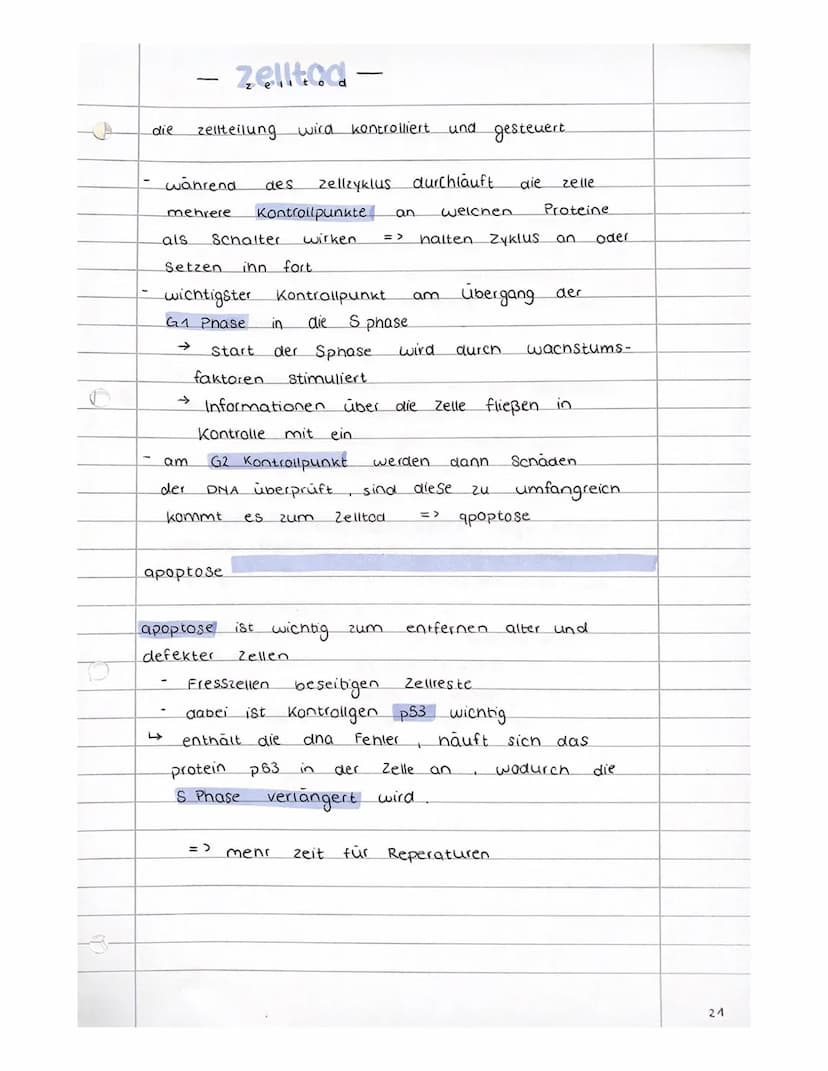 — zelltod —
zelltod
die zellteilung wird kontrolliert und gesteuert
- während des zellzyklus durchläuft die zelle
mehrere Kontrollpunkte an welchen Proteine
als Schalter wirken => halten Zyklus an oder
Setzen ihn fort
- wichtigster Kontrollpunkt am Übergang der
G1 Phase in die S phase
→ Start der Sphase wird durch wachstums-
faktoren stimuliert
→ Informationen über die Zelle fließen in
Kontrolle mit ein
- am G2 Kontrollpunkt werden dann Schäden
der DNA überprüft, sind diese zu umfangreich
kommt es zum Zelltod => apoptose
apoptose
apoptose ist wichtig zum entfernen alter und
defekter Zellen
- Fresszellen beseitigen Zellreste
- dabei ist Kontrollgen p53 wichtig
↳ enthält die dna Fehler, häuft sich das
protein p53 in der Zelle an, wodurch die
S Phase verlängert wird.
=> mehr zeit für Reperaturen
21